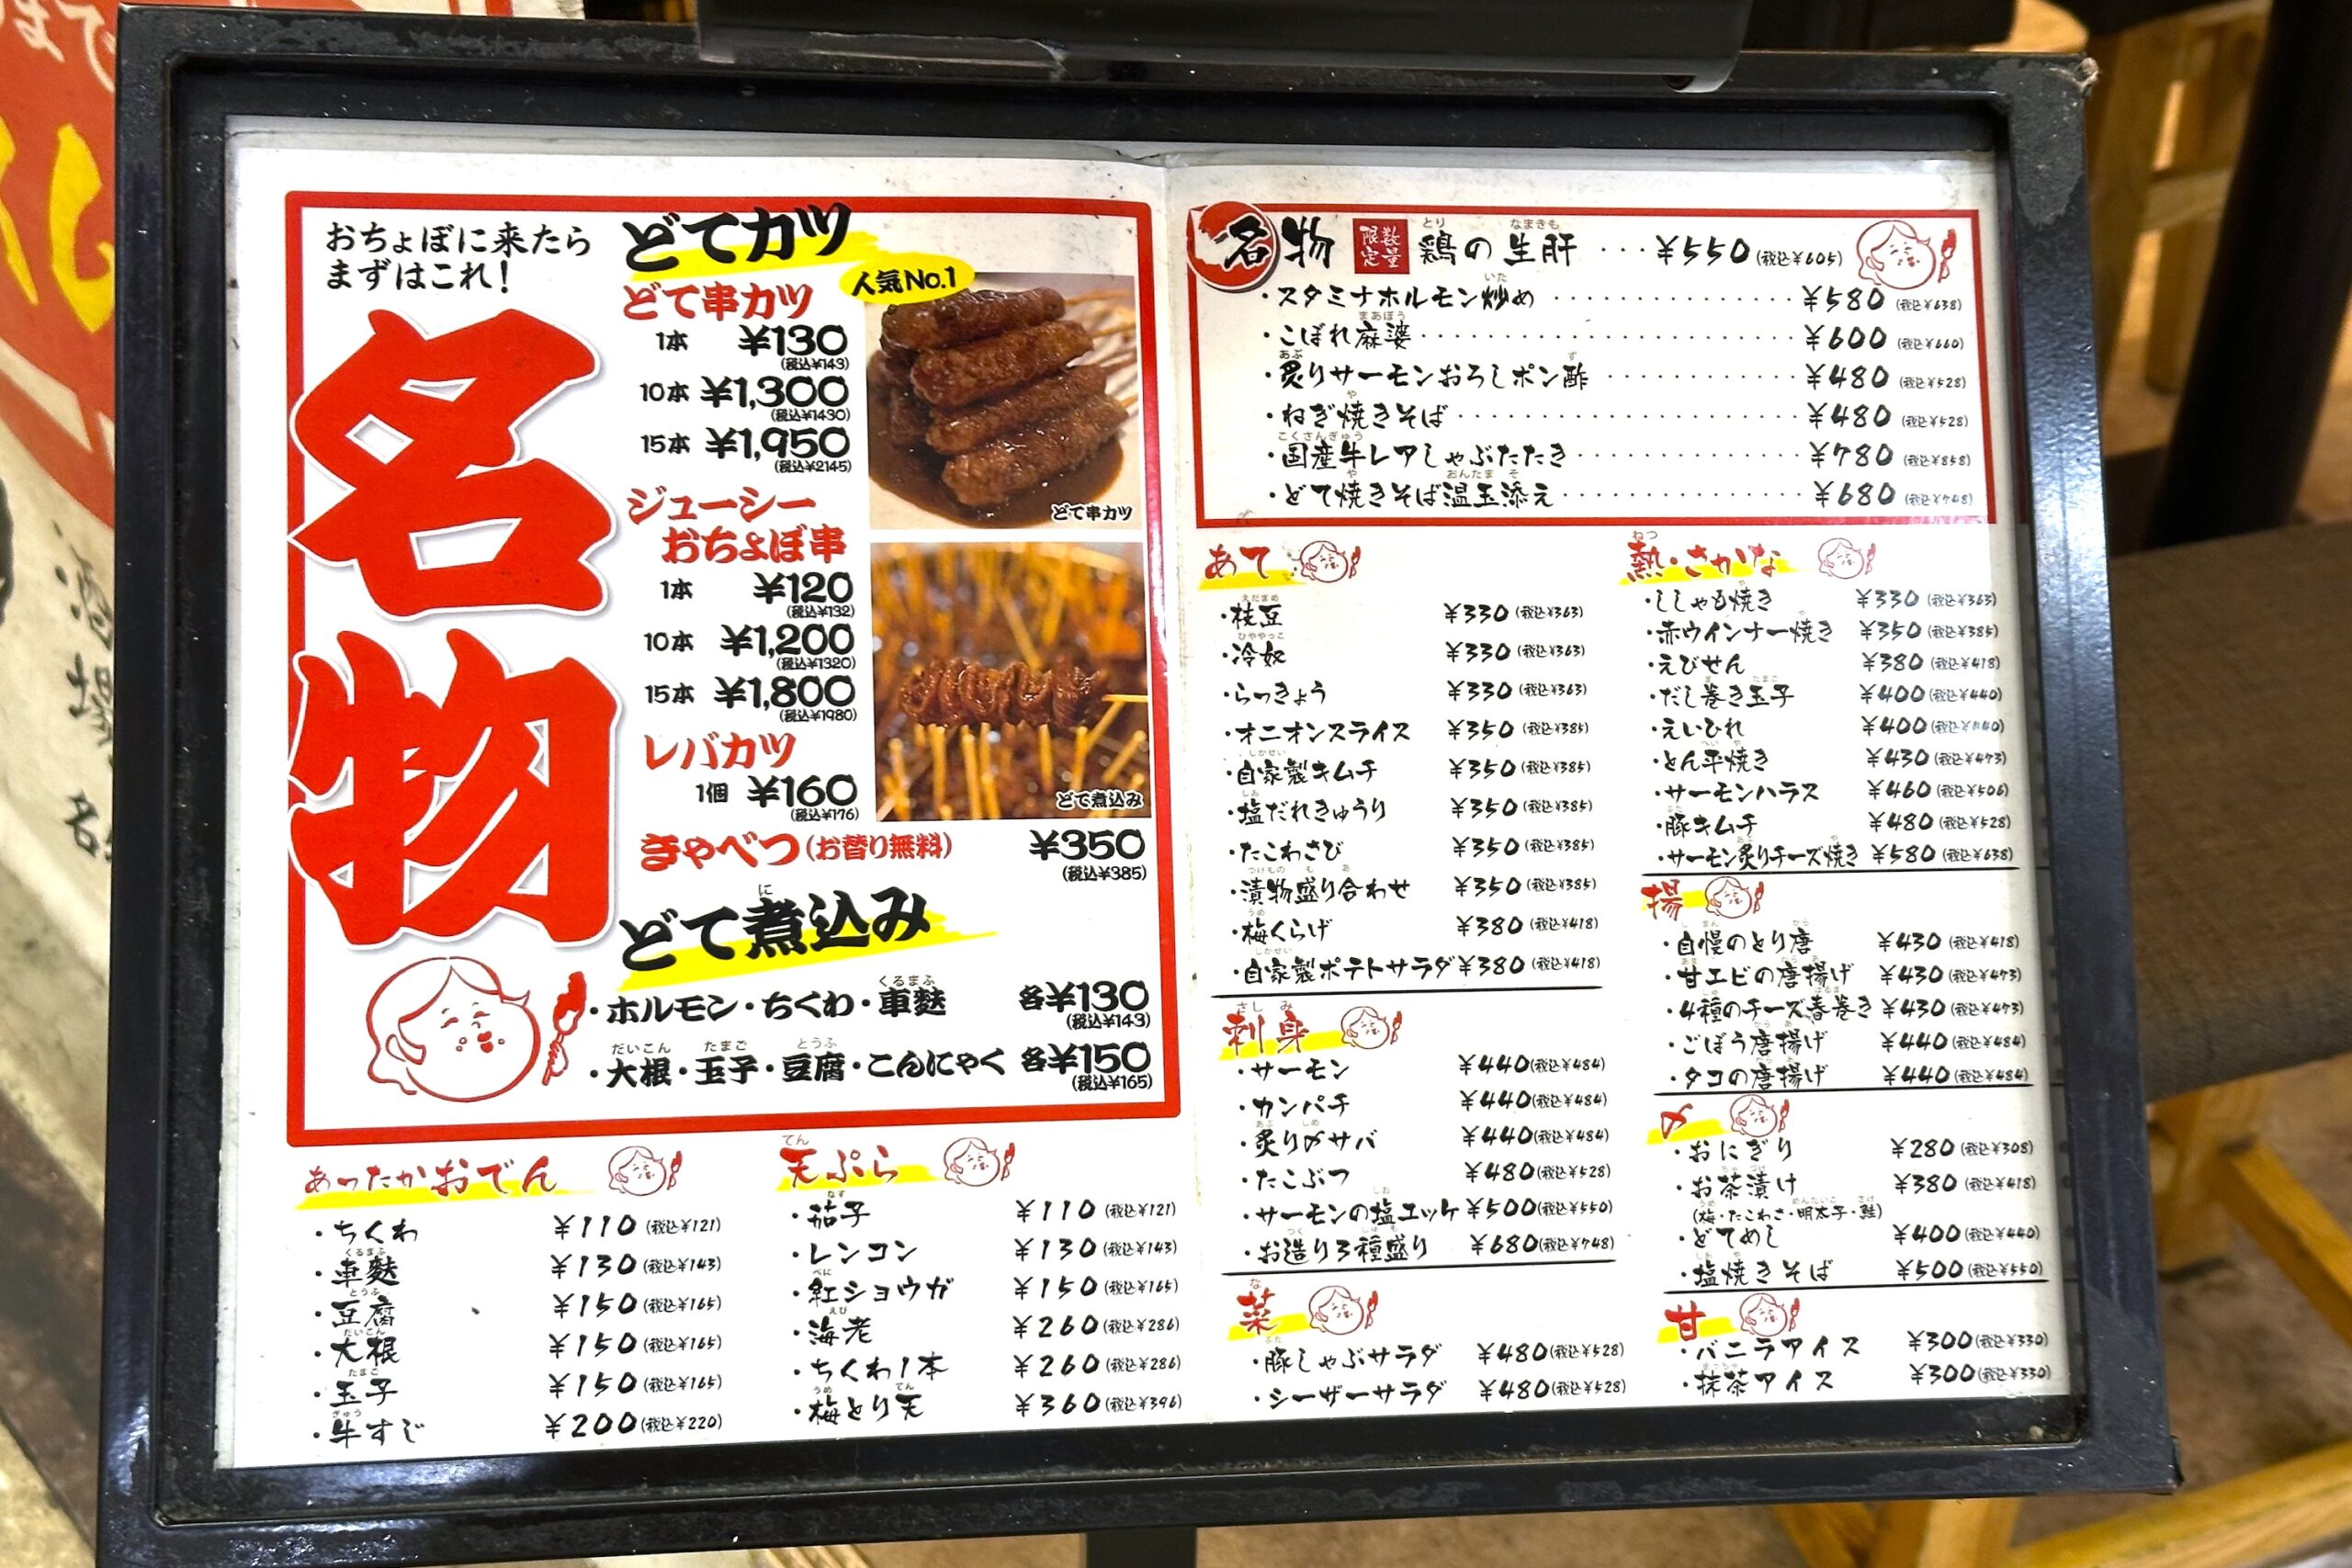 おちょぼに来たら
まずはこれ!
名物
どてカツ
人気No.1
どて串カツ
1本 ¥130
(税込¥143)
10本 ¥1,300
(税込¥1430)
15本 ¥1,950
(税込¥2145)
どて串カツ
ジューシー
おちょぼ串
1本 ¥120
(税込¥132)
10本 ¥1,200
(税込¥1320)
15本 ¥1,800
(税込¥1980)
レバカツ
1個 ¥160
(税込¥176)
どて煮込み
きゃべつ(お替り無料) ¥350
(税込¥385)
に
どて煮込み
くるまふ
・ホルモン・ちくわ・車麩 各¥130
(税込¥143)
だいこん たまご とうふ
・大根・玉子・豆腐・こんにゃく 各¥150
(税込¥165)
あったかおでん
・ちくわ ¥110(税込¥121)
くるまふ
・車麩 ¥130(税込¥143)
とうふ
・豆腐 ¥150(税込¥165)
だいこん
・大根 ¥150(税込¥165)
たまご
・玉子 ¥150(税込¥165)
ぎゅう
・牛すじ ¥200(税込¥220)
てん
天ぷら
なす
・茄子 ¥110(税込¥121)
・レンコン ¥130(税込¥143)
べに
・紅ショウガ ¥150(税込¥165)
えび
・海老 ¥260(税込¥286)
・ちくわ1本 ¥260(税込¥286)
うめ てん
・梅とり天 ¥360(税込¥396)
とり なまきも
名物 数量限定 鶏の生肝 ・・・¥550(税込¥605)
いた
・スタミナホルモン炒め ¥580(税込¥638)
まあぼう
・こぼれ麻婆 ¥600(税込¥660)
あぶ ず
・炙りサーモンおろしポン酢 ¥480(税込¥528)
や
・ねぎ焼きそば ¥480(税込¥528)
こくさんぎゅう
・国産牛レアしゃぶたたき ¥780(税込¥858)
や おんたま そ
・どて焼きそば温玉添え ¥680(税込¥748)
あて
えだまめ
・枝豆 ¥330(税込¥363)
ひややっこ
・冷奴 ¥330(税込¥363)
・らっきょう ¥330(税込¥363)
・オニオンスライス ¥350(税込¥385)
じかせい
・自家製キムチ ¥350(税込¥385)
しお
・塩だれきゅうり ¥350(税込¥385)
・たこわさび ¥350(税込¥385)
つけもの も あ
・漬物盛り合わせ ¥350(税込¥385)
うめ
・梅くらげ ¥380(税込¥418)
じかせい
・自家製ポテトサラダ¥380(税込¥418)
さしみ
刺身
・サーモン ¥440(税込¥484)
・カンパチ ¥440(税込¥484)
あぶ しめ
・炙り〆サバ ¥440(税込¥484)
・たこぶつ ¥480(税込¥528)
しお
・サーモンの塩ユッケ¥500(税込¥550)
つく しゅも
・お造り3種盛り ¥680(税込¥748)
な
菜
ぶた
・豚しゃぶサラダ ¥480(税込¥528)
・シーザーサラダ ¥480(税込¥528)
ねつ
熱・さかな
や
・ししゃも焼き ¥330(税込¥363)
や
・赤ウインナー焼き ¥350(税込¥385)
・えびせん ¥380(税込¥418)
ま たまご
・だし巻き玉子 ¥400(税込¥440)
・えいひれ ¥400(税込¥440)
へいや
・とん平焼き ¥430(税込¥473)
・サーモンハラス ¥460(税込¥506)
ぶた
・豚キムチ ¥480(税込¥528)
あぶ や
・サーモン炙りチーズ焼き ¥580(税込¥638)
揚
じまん から
・自慢のとり唐 ¥430(税込¥418)
あま からあ
・甘エビの唐揚げ ¥430(税込¥473)
しゅ はるま
・4種のチーズ春巻き ¥430(税込¥473)
からあ
・ごぼう唐揚げ ¥440(税込¥484)
からあ
・タコの唐揚げ ¥440(税込¥484)
〆
・おにぎり ¥280(税込¥308)
ちゃづ
・お茶漬け ¥380(税込¥418)
うめ めんたいこ さけ
(梅・たこわさ・明太子・鮭)
・どてめし ¥400(税込¥440)
しおや
・塩焼きそば ¥500(税込¥550)
甘
・バニラアイス ¥300(税込¥330)
まっちゃ
・抹茶アイス ¥300(税込¥330)